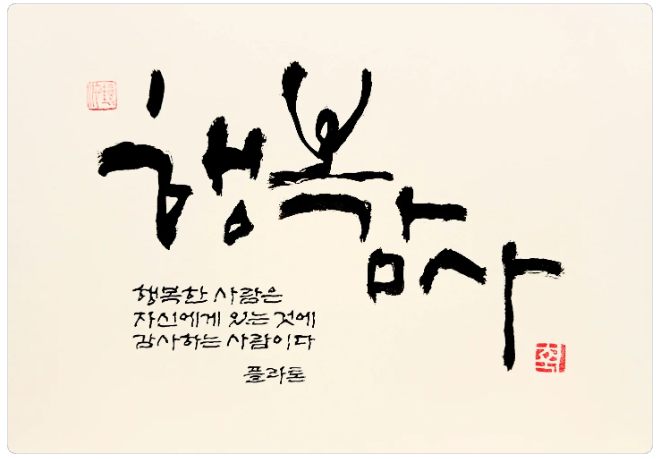 행복
감사
행복한 사람은
자신에게 있는 것에
감사하는 사람이다
플라톤